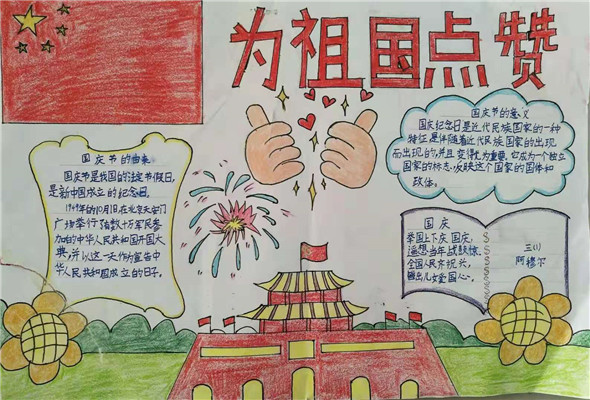 为祖国点赞
国庆节的由来
国庆节是我国的法定节假日,
是新中国成立的纪念日。
1949年的10月1日,在北京天安门
广场举行了有数十万军民参
加的中华人民共和国开国大
典,并以这一天作为宣告中
华人民共和国成立的日子。
国庆节的意义
国庆纪念日是近代民族国家的一种
特征,是伴随着近代民族国家的出现
而出现的,并且变得尤为重要,它成为一个独立
国家的标志,反映这个国家的国体和
政体。
国庆
举国上下庆国庆,
遥想当年战
全国人民齐祝兴,
儿女爱国心。
三(1)
阿穆尔